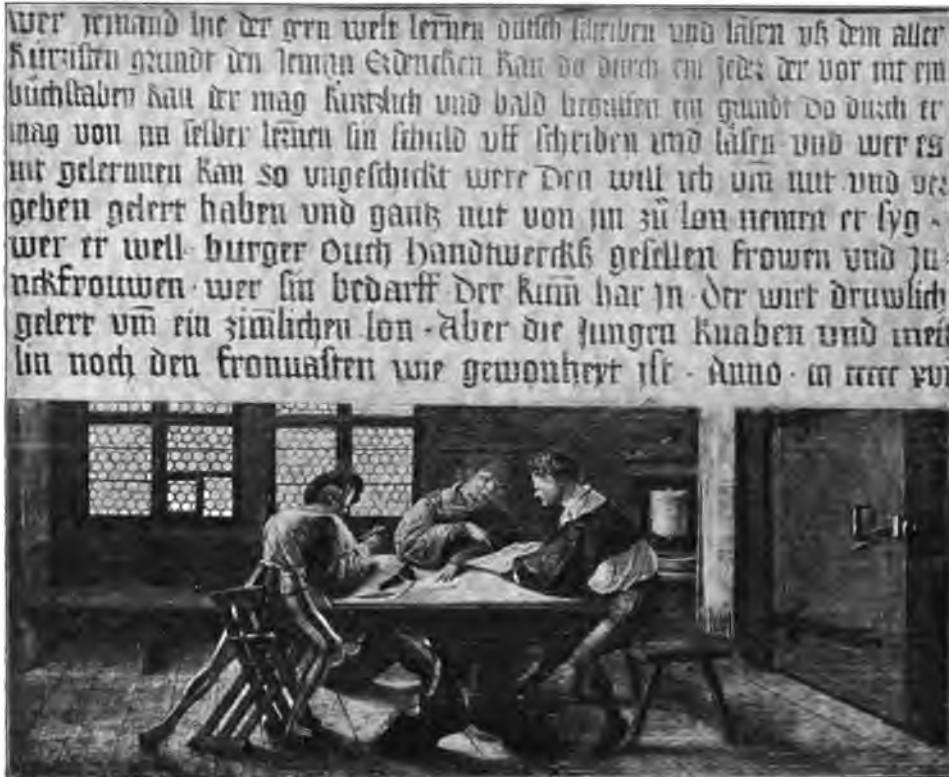 wer jemand hie der gern welt lernen dütsch schriben und läsen uß dem aller
kürzisten grundt den Jeman Erdencken kan do durch ein jeder der vor nit ein
büchstaben kan der mag kürtzlich und bald begriffen ein grundt do durch er
mag von im selber lernen sin schuld uff schriben und läsen · und wer es
nit gelernnen kan so ungeschickt were Den will ich um̄ nut und ver
geben gelert haben und gantz nut von im zů lon nemen er syg ·
wer er well · burger Ouch handtwerckß gesellen frowen und Ju=
nckfrouwen · wer sin bedarff · Der kum̄ har jn · der wirt drüwlich
gelert um̄ ein zim̄lichen lon · Aber die jungen knaben und meit
lin noch den fronuasten wie gewonheyt ist · Anno · m ccccc xvi